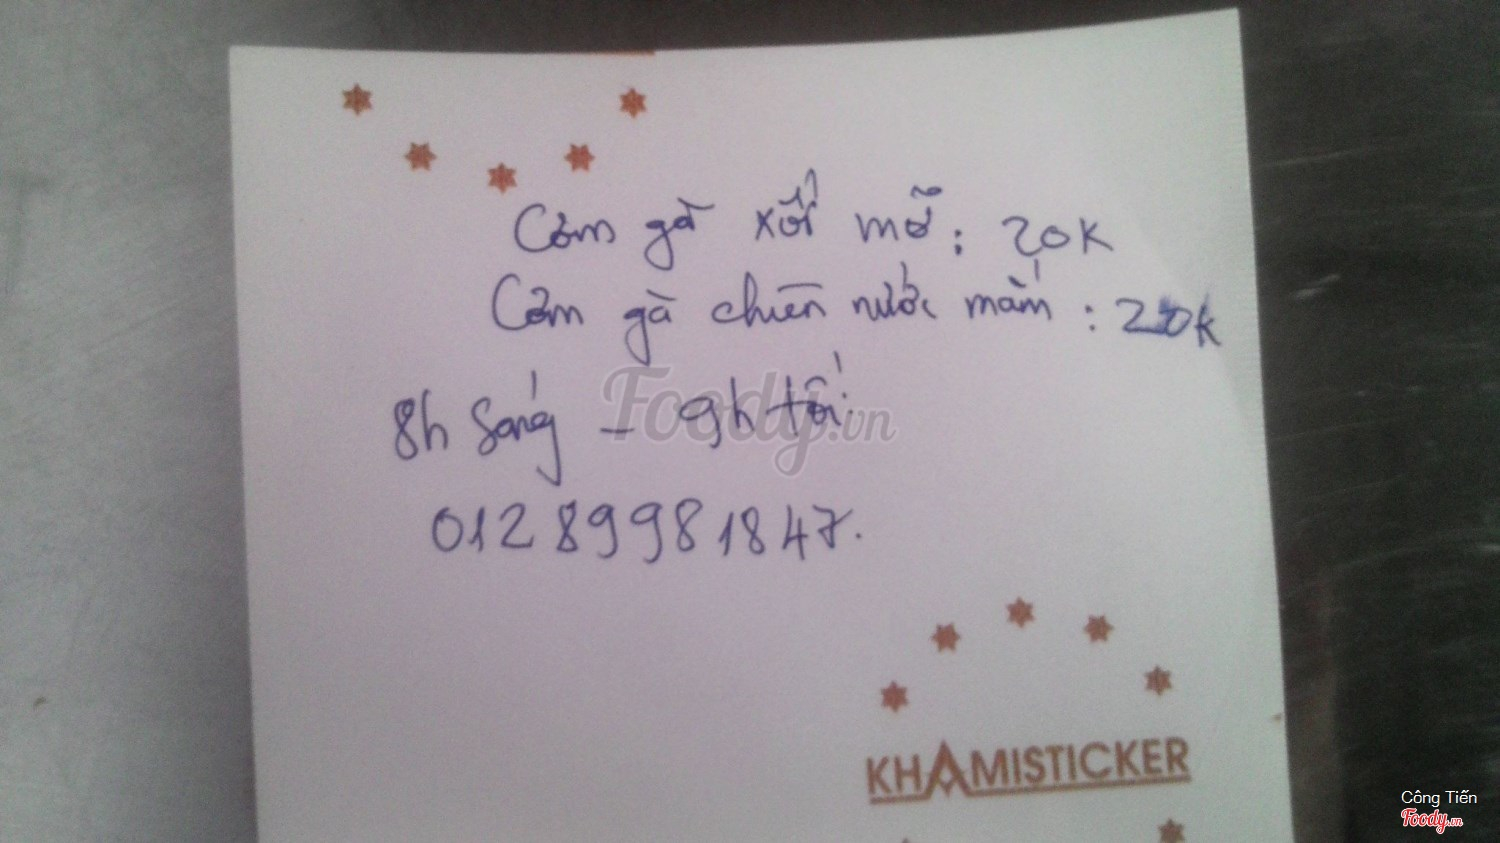 Cơm gà xối mỡ: 20K
Cơm gà chiên nước mắm: 20K
8h sáng - 9h tối.
Foody.vn
01289981847.
KHAMISTICKER
Công Tiến
Foody.vn